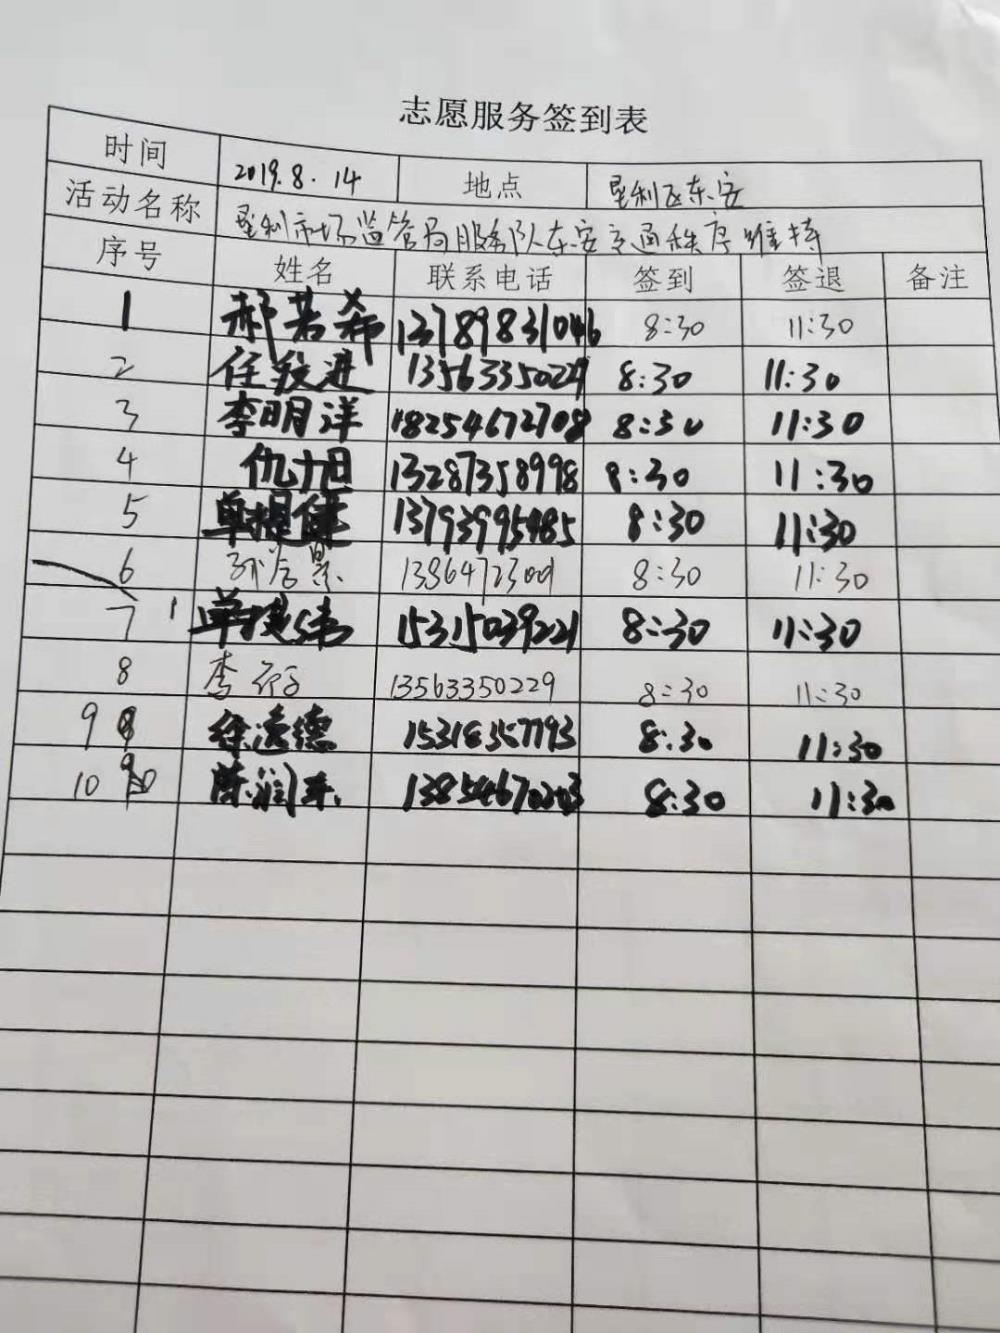 志愿服务签到表
时间 2019.8.14 地点 垦利区东安
活动名称 垦利市场监管局服务队东安交通秩序维持
序号 姓名 联系电话 签到 签退 备注
1 郝若希 13789831046 8:30 11:30
2 任 进 13563350229 8:30 11:30
3 李明洋 18254672708 8:30 11:30
4 仇旭 13287358998 8:30 11:30
5 单提健 13793995485 8:30 11:30
6 8:30 11:30
7 单 15315039221 8:30 11:30
8 李 13563350229 8:30 11:30
9 徐 德 8:30 11:30
10 陈润东 8:30 11:30